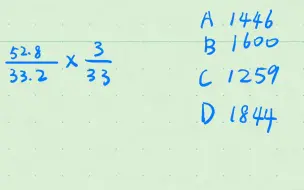 52.8/33.2 × 3/33
A 1446
B 1600
C 1259
D 1844